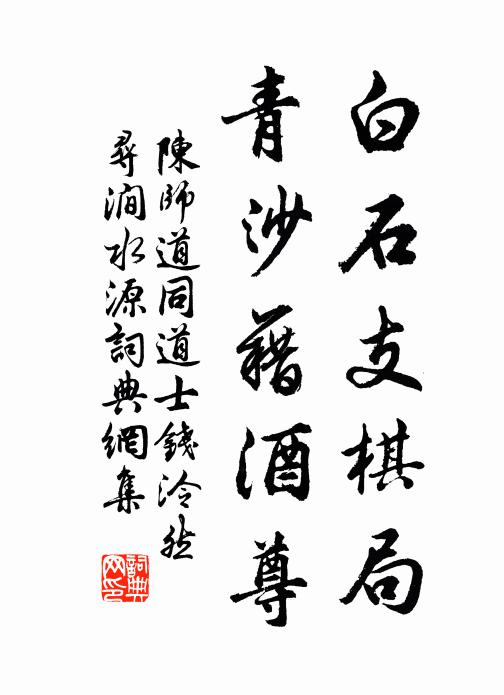 白石支棋局
青沙藉酒尊
陳師道同道士錢泠然
尋澗水源詞典網集
詞典
网印